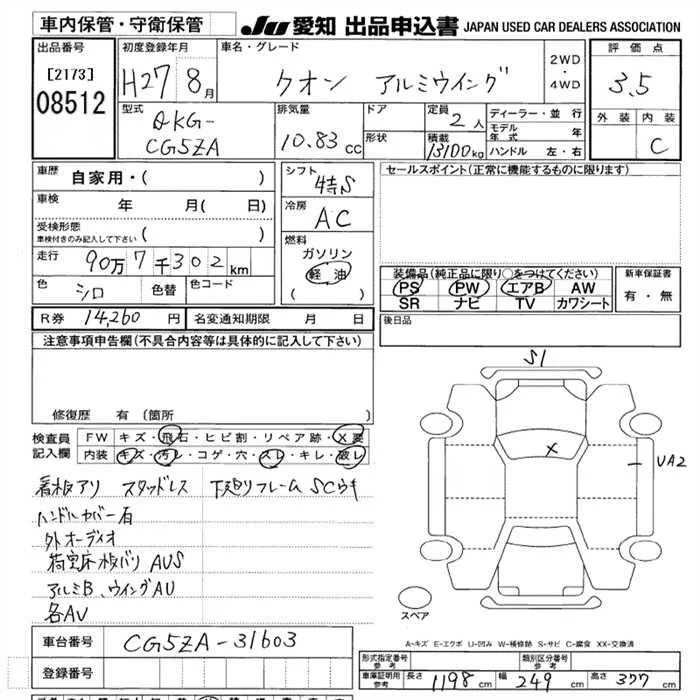 車内保管・守衛保管
JU 愛知 出品申込書 JAPAN USED CAR DEALERS ASSOCIATION
出品番号
[2173]
08512
初度登録年月
H27 8月
車名・グレード
クオン アルミウイング
2WD
・
4WD
評価点
3.5
外装 内装
C
型式
QKG-
CG5ZA
排気量
10.83 cc
ドア
形状
定員
2人
積載
13100kg
ディーラー・並行
モデル年式 年
ハンドル 左・右
車歴
自家用・( )
車検
年 月( 日)
受検形態
車検付きのみ記入して下さい ( )
走行
90万7千302km
色
シロ
色替
色コード
シフト
4特S
冷房
AC
燃料
ガソリン
軽油
( )
セールスポイント(正常に機能するものに限ります)
装備品(純正品に限り○をつけてください)
PS PW エアB AW
SR ナビ TV カワシート
新車保証書
有・無
R券 14,260円
名変通知期限 月 日
後日品
注意事項申告欄(不具合内容等は具体的に記入して下さい)
修復歴 有 (箇所
検査員
記入欄
FW キズ・飛石・ヒビ割・リペア跡・X要
内装 キズ・汚レ・コゲ・穴・スレ・キレ・破レ
看板アリ スタッドレス 下廻りフレーム SCウキ
ハンドルカバー 右
外オーディオ
荷室床板バリ AUS
アルミB、ウイングAU
各AV
S1
X
UA2
スペア
A-キズ E-エクボ U-凹み W-補修跡 S-サビ C-腐食 XX-交換済
車台番号
CG5ZA-31603
登録番号
形式指定番号
参考
類別区分番号
参考
車庫証明用
参考
長さ 1198cm 幅 249cm 高さ 377cm